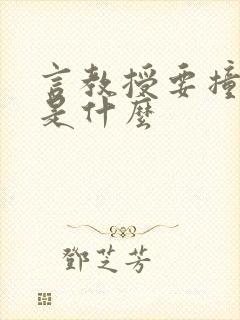 言教授要撞
是什麼
鄧芝芳